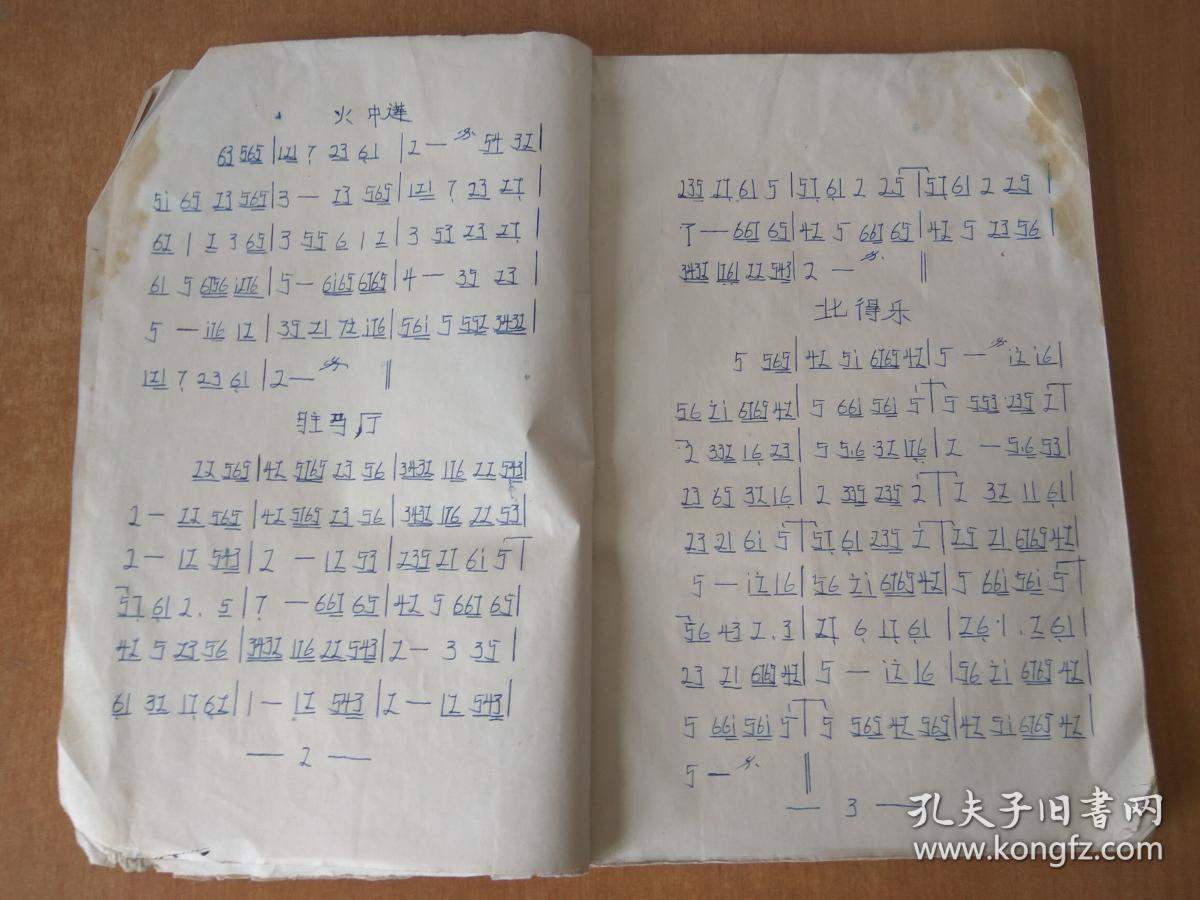 火中莲
63 565 | 121 7 23 61 | 2 — 54 32 |
51 65 23 565 | 3 — 23 565 | 121 7 23 27 |
62 1 2 3 65 | 3 55 6 1 2 | 3 53 23 27 |
61 5 6156 1276 | 5 — 6165 6765 | 4 — 35 23 |
5 — 176 12 | 35 21 72 176 | 561 5 552 3432 |
121 7 23 61 | 2 — ‖
驻马厅
22 565 | 42 5165 23 56 | 3432 176 22 543 |
2 — 22 565 | 42 5165 23 56 | 3432 176 22 53 |
2 — 12 543 | 2 — 12 53 | 235 27 61 5 |
57 61 2. 5 | 7 — 667 65 | 42 5 667 65 |
42 5 23 56 | 3432 176 22 543 | 2 — 3 35 |
61 32 17 62 | 1 — 12 543 | 2 — 12 543 |
— 2 —
235 27 61 5 | 57 61 2 25 | 57 61 2 25 |
7 — 667 65 | 42 5 667 65 | 42 5 23 56 |
3432 1761 22 543 | 2 — ‖
北得乐
5 565 | 42 51 6765 42 | 5 — 12 16 |
56 21 6765 42 | 5 661 561 5 | 5 553 235 2 |
2 332 16 23 | 5 5.6 32 176 | 2 — 5.6 53 |
23 65 32 16 | 2 335 235 2 | 2 32 11 61 |
23 21 61 5 | 57 61 235 2 | 25 21 6765 42 |
5 — 12 16 | 56 21 6765 42 | 5 661 561 5 |
56 43 2.3 | 27 6 17 61 | 26.1.261 |
23 21 6765 42 | 5 — 12 16 | 56 21 6765 42 |
5 661 561 5 | 5 565 42 565 | 42 51 6765 42 |
5 — ‖
— 3 —
孔夫子旧书网
www.kongfz.com